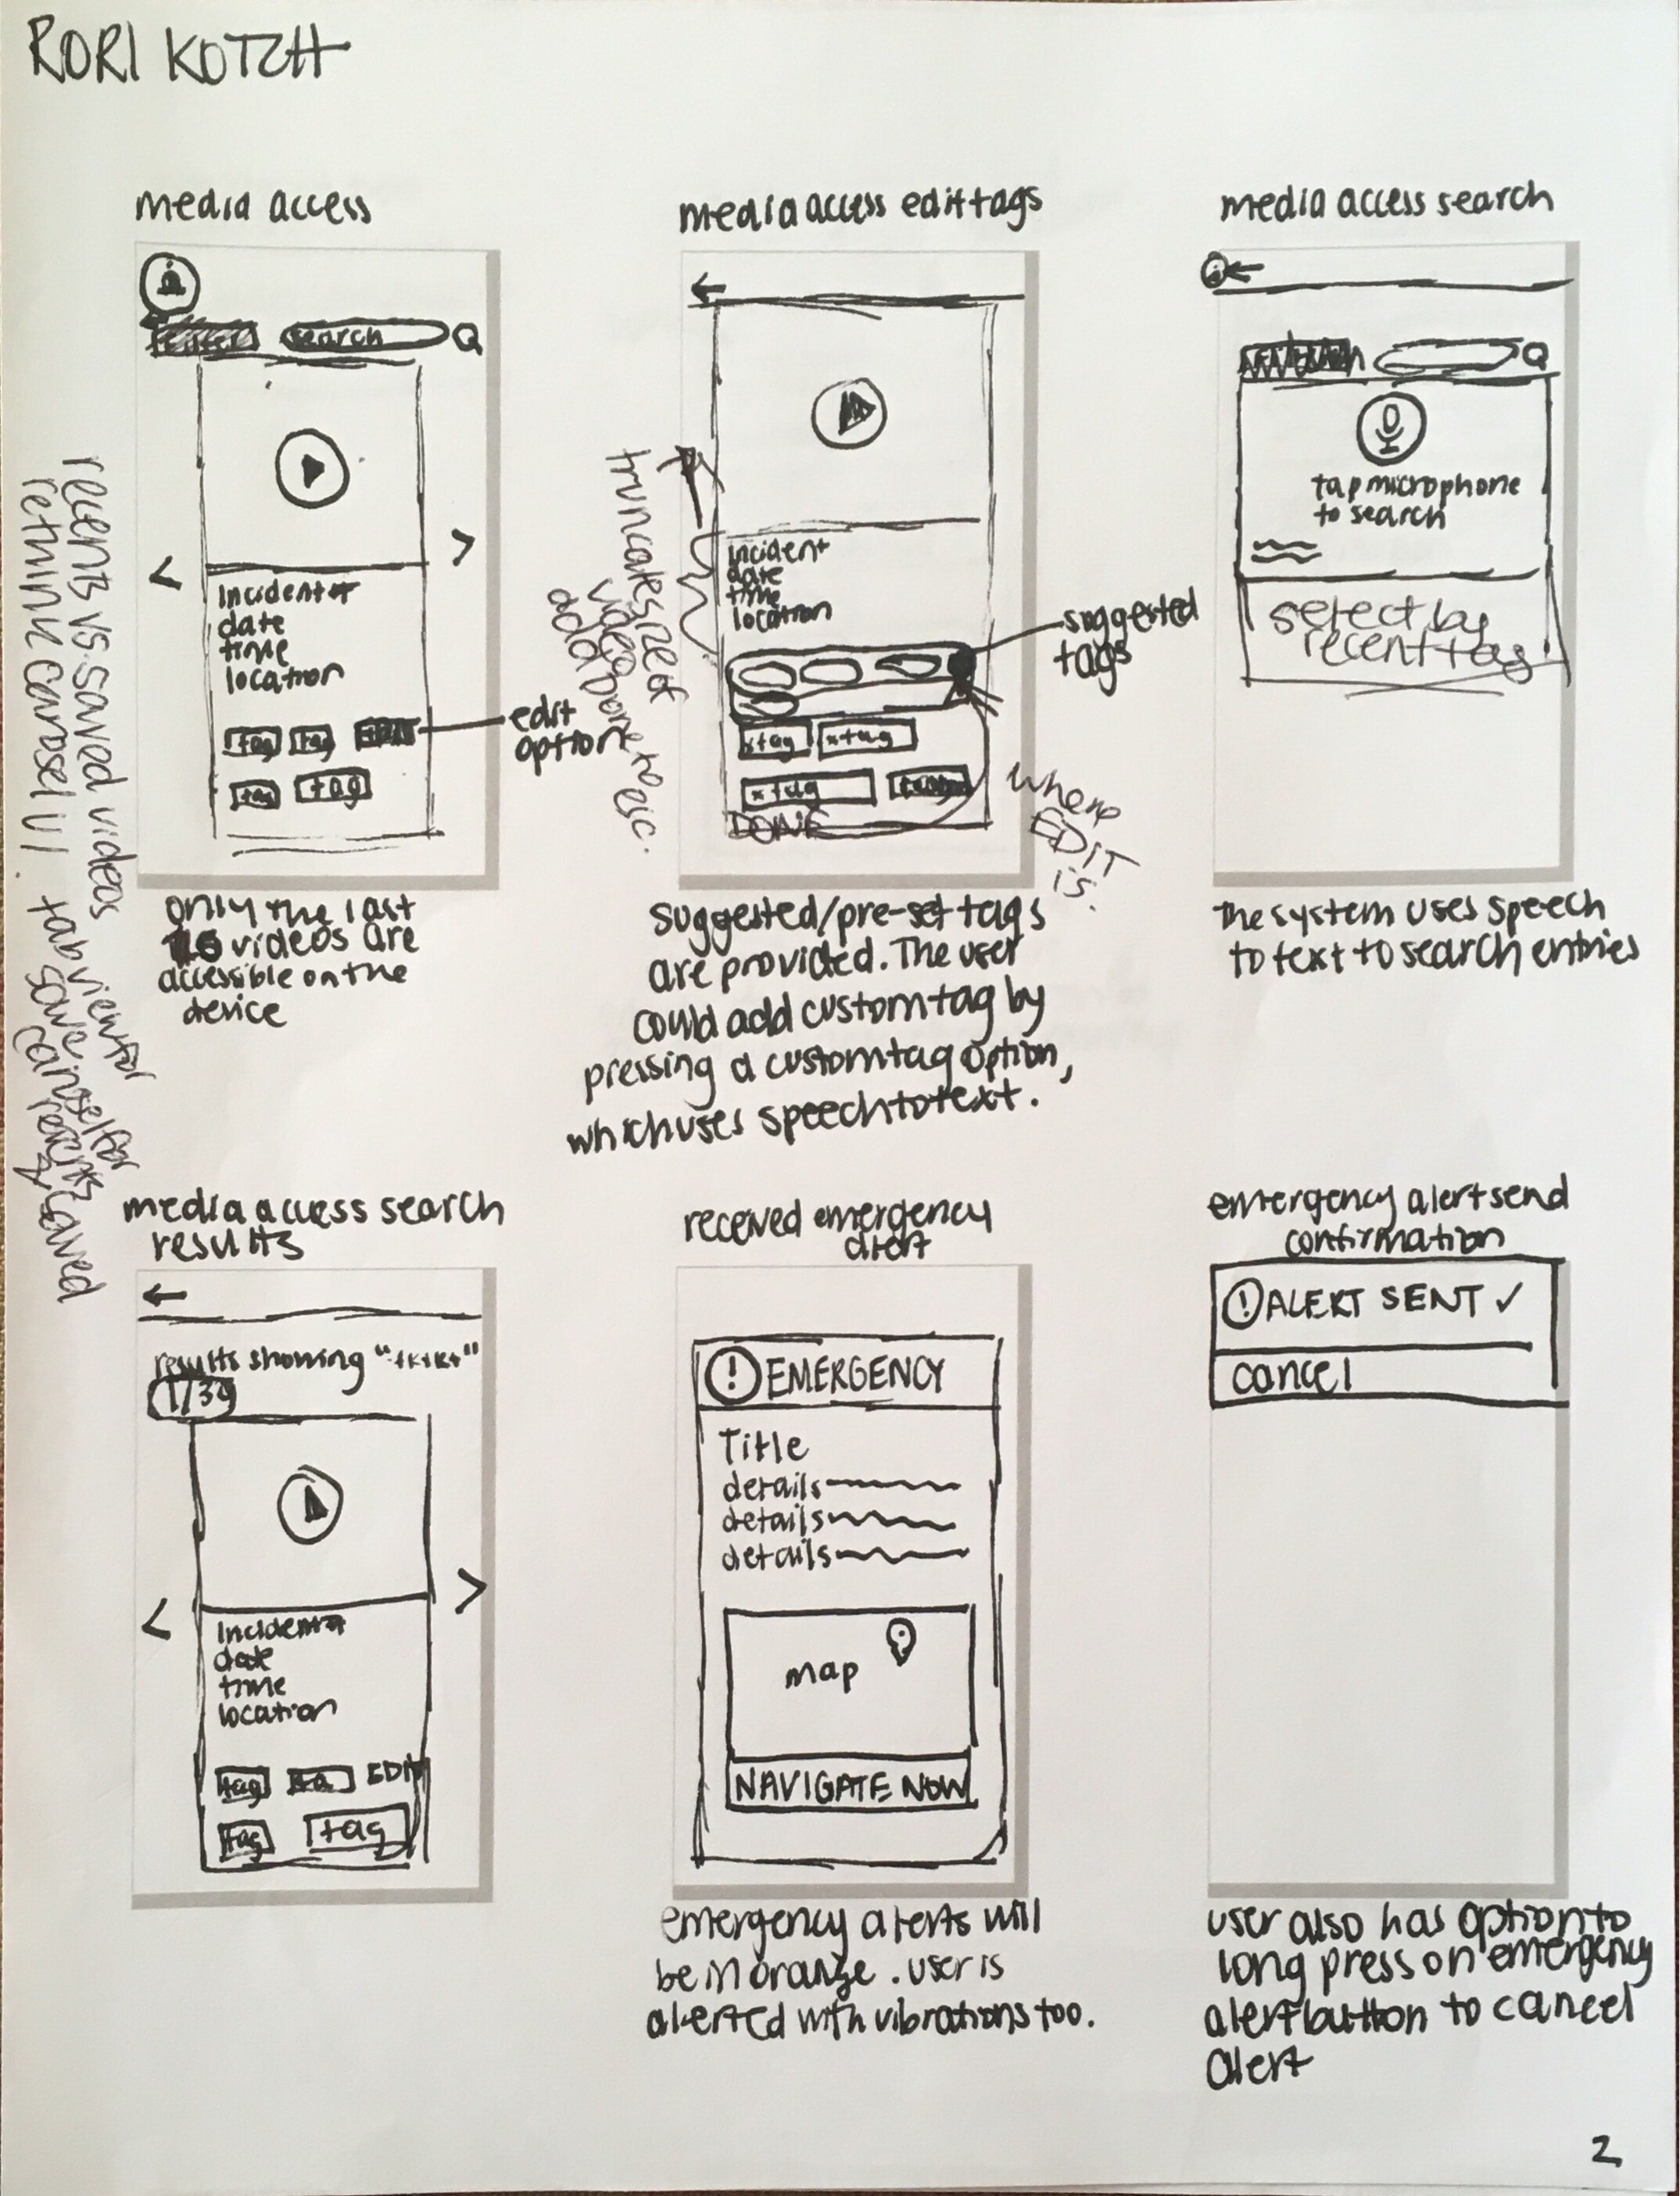 RORI KOTCH
media access
search
Incident #
date
time
location
tag tag
tag tag
edit
option
only the last
videos are
accessible on the
device
recents vs. saved videos
rethink carosel UI
tab view for
save
carosel for
recents
saved
media access edit tags
Incident
date
time
location
suggested
tags
x tag x tag
x tag
DONE
where
EDIT
is.
truncate size of
video
add Done to
suggested/pre-set tags
are provided. The user
could add custom tag by
pressing a custom tag option,
which uses speech to text.
media access search
tap microphone
to search
select by
recent tag
The system uses speech
to text to search entries
media access search
results
results showing "
1/39
Incident #
date
time
location
tag EDIT
tag tag
received emergency
alert
! EMERGENCY
Title
details
details
details
map
NAVIGATE NOW
emergency alerts will
be in orange. user is
alerted with vibrations too.
emergency alert send
confirmation
! ALERT SENT ✓
cancel
user also has option to
long press on emergency
alert button to cancel
alert
2